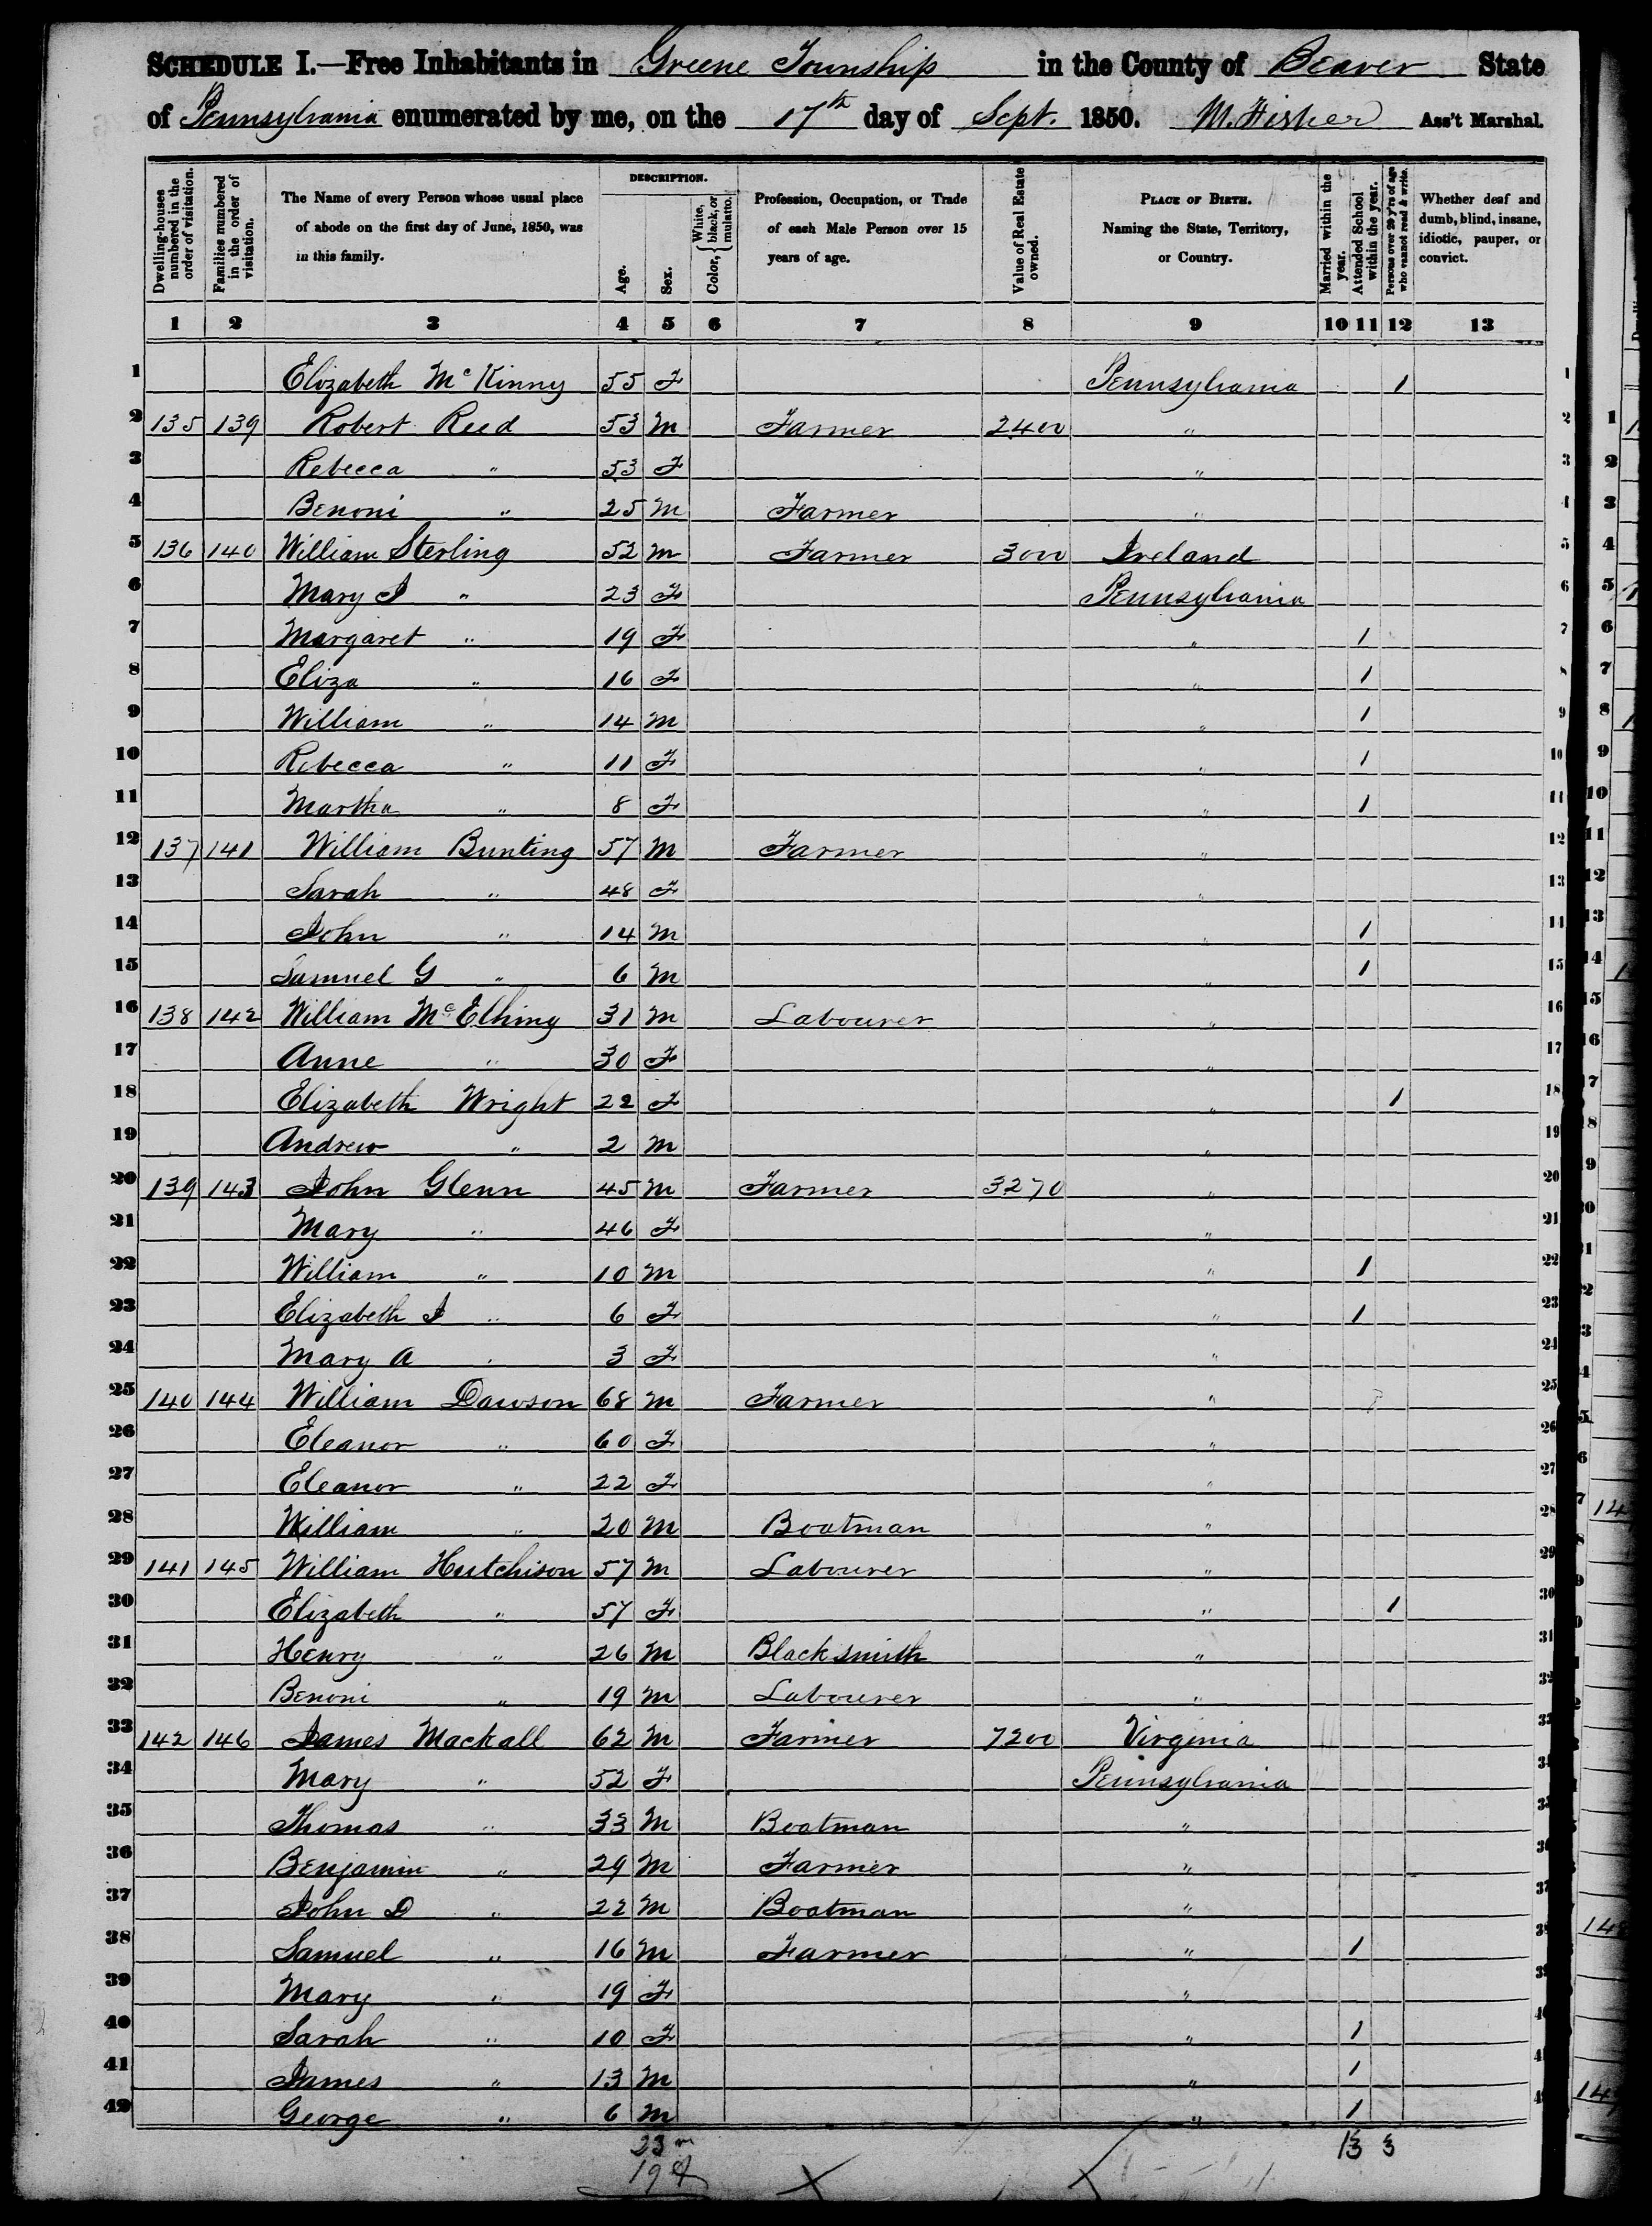 SCHEDULE I.—Free Inhabitants in Greene Township in the County of Beaver State
of Pennsylvania enumerated by me, on the 17th day of Sept. 1850. M. Fisher Ass't Marshal.
Dwelling-houses numbered in the order of visitation.
Families numbered in the order of visitation.
The Name of every Person whose usual place of abode on the first day of June, 1850, was in this family.
DESCRIPTION.
Age.
Sex.
Color, { White, black, or mulatto.
Profession, Occupation, or Trade of each Male Person over 15 years of age.
Value of Real Estate owned.
PLACE OF BIRTH. Naming the State, Territory, or Country.
Married within the year.
Attended School within the year.
Persons over 20 y'rs of age who cannot read & write.
Whether deaf and dumb, blind, insane, idiotic, pauper, or convict.
1 2 3 4 5 6 7 8 9 10 11 12 13
1 Elizabeth McKinny 55 F Pennsylvania 1 1
2 135 139 Robert Reed 53 M Farmer 2400 " 2
3 Rebecca " 53 F " 3
4 Benoni " 25 M Farmer " 4
5 136 140 William Sterling 52 M Farmer 3000 Ireland 5
6 Mary J " 23 F Pennsylvania 6
7 Margaret " 19 F " 1 7
8 Eliza " 16 F " 1 8
9 William " 14 M " 1 9
10 Rebecca " 11 F " 1 10
11 Martha " 8 F " 1 11
12 137 141 William Bunting 57 M Farmer " 12
13 Sarah " 48 F " 13
14 John " 14 M " 1 14
15 Samuel G " 6 M " 1 15
16 138 142 William McElhiny 31 M Labourer " 16
17 Anne " 30 F " 17
18 Elizabeth Wright 22 F " 1 18
19 Andrew " 2 M " 19
20 139 143 John Glenn 45 M Farmer 3270 " 20
21 Mary " 46 F " 21
22 William " 10 M " 1 22
23 Elizabeth J " 6 F " 1 23
24 Mary A " 3 F " 24
25 140 144 William Dawson 68 M Farmer " 25
26 Eleanor " 60 F " 26
27 Eleanor " 22 F " 27
28 William " 20 M Boatman " 28
29 141 145 William Hutchison 57 M Labourer " 29
30 Elizabeth " 57 F " 1 30
31 Henry " 26 M Blacksmith " 31
32 Benoni " 19 M Labourer "
33 142 146 James Mackall 62 M Farmer 7200 Virginia
34 Mary " 52 F Pennsylvania
35 Thomas " 33 M Boatman "
36 Benjamin " 29 M Farmer "
37 John D " 22 M Boatman "
38 Samuel " 16 M Farmer " 1
39 Mary " 19 F "
40 Sarah " 10 F " 1
41 James " 13 M " 1
42 George " 6 M " 1
23 m 13 3
19 f